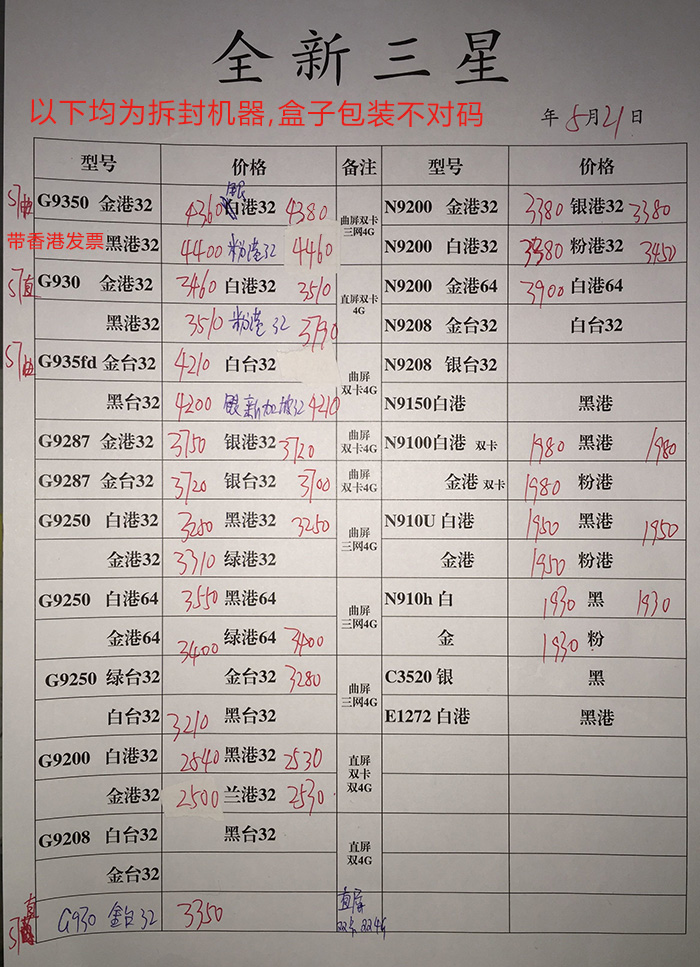 全新三星
以下均为拆封机器,盒子包装不对码
年 5月21日
型号 价格 备注 型号 价格
S7曲 G9350 金港32 4360 银港32 4380 曲屏双卡 三网4G N9200 金港32 3380 银港32 3380
带香港发票 黑港32 4400 粉港32 4460 N9200 白港32 3380 粉港32 3450
S7直 G930 金港32 3460 白港32 3510 直屏双卡 4G N9200 金港64 3900 白港64
黑港32 3510 粉港32 3790 N9208 金台32 白台32
S7曲 G935fd 金台32 4210 白台32 曲屏 双卡4G N9208 银台32
黑台32 4200 银新加坡32 4210 N9150白港 黑港
G9287 金港32 3750 银港32 3720 曲屏 双卡4G N9100白港 双卡 1980 黑港 1980
G9287 金台32 3720 银台32 3700 曲屏 双卡4G 金港 双卡 1980 粉港
G9250 白港32 3280 黑港32 3250 曲屏 三网4G N910U 白港 1950 黑港 1950
金港32 3310 绿港32 金港 1950 粉港
G9250 白港64 3550 黑港64 曲屏 三网4G N910h 白 1930 黑 1930
金港64 3400 绿港64 3400 金 1930 粉
G9250 绿台32 金台32 3280 曲屏 三网4G C3520 银 黑
白台32 3210 黑台32 E1272 白港 黑港
G9200 白港32 2540 黑港32 2530 直屏 双卡 双4G
金港32 2500 兰港32 2530
G9208 白台32 黑台32 直屏 双4G
金台32
S7直 G930 金台32 3350 直屏 双卡双4G